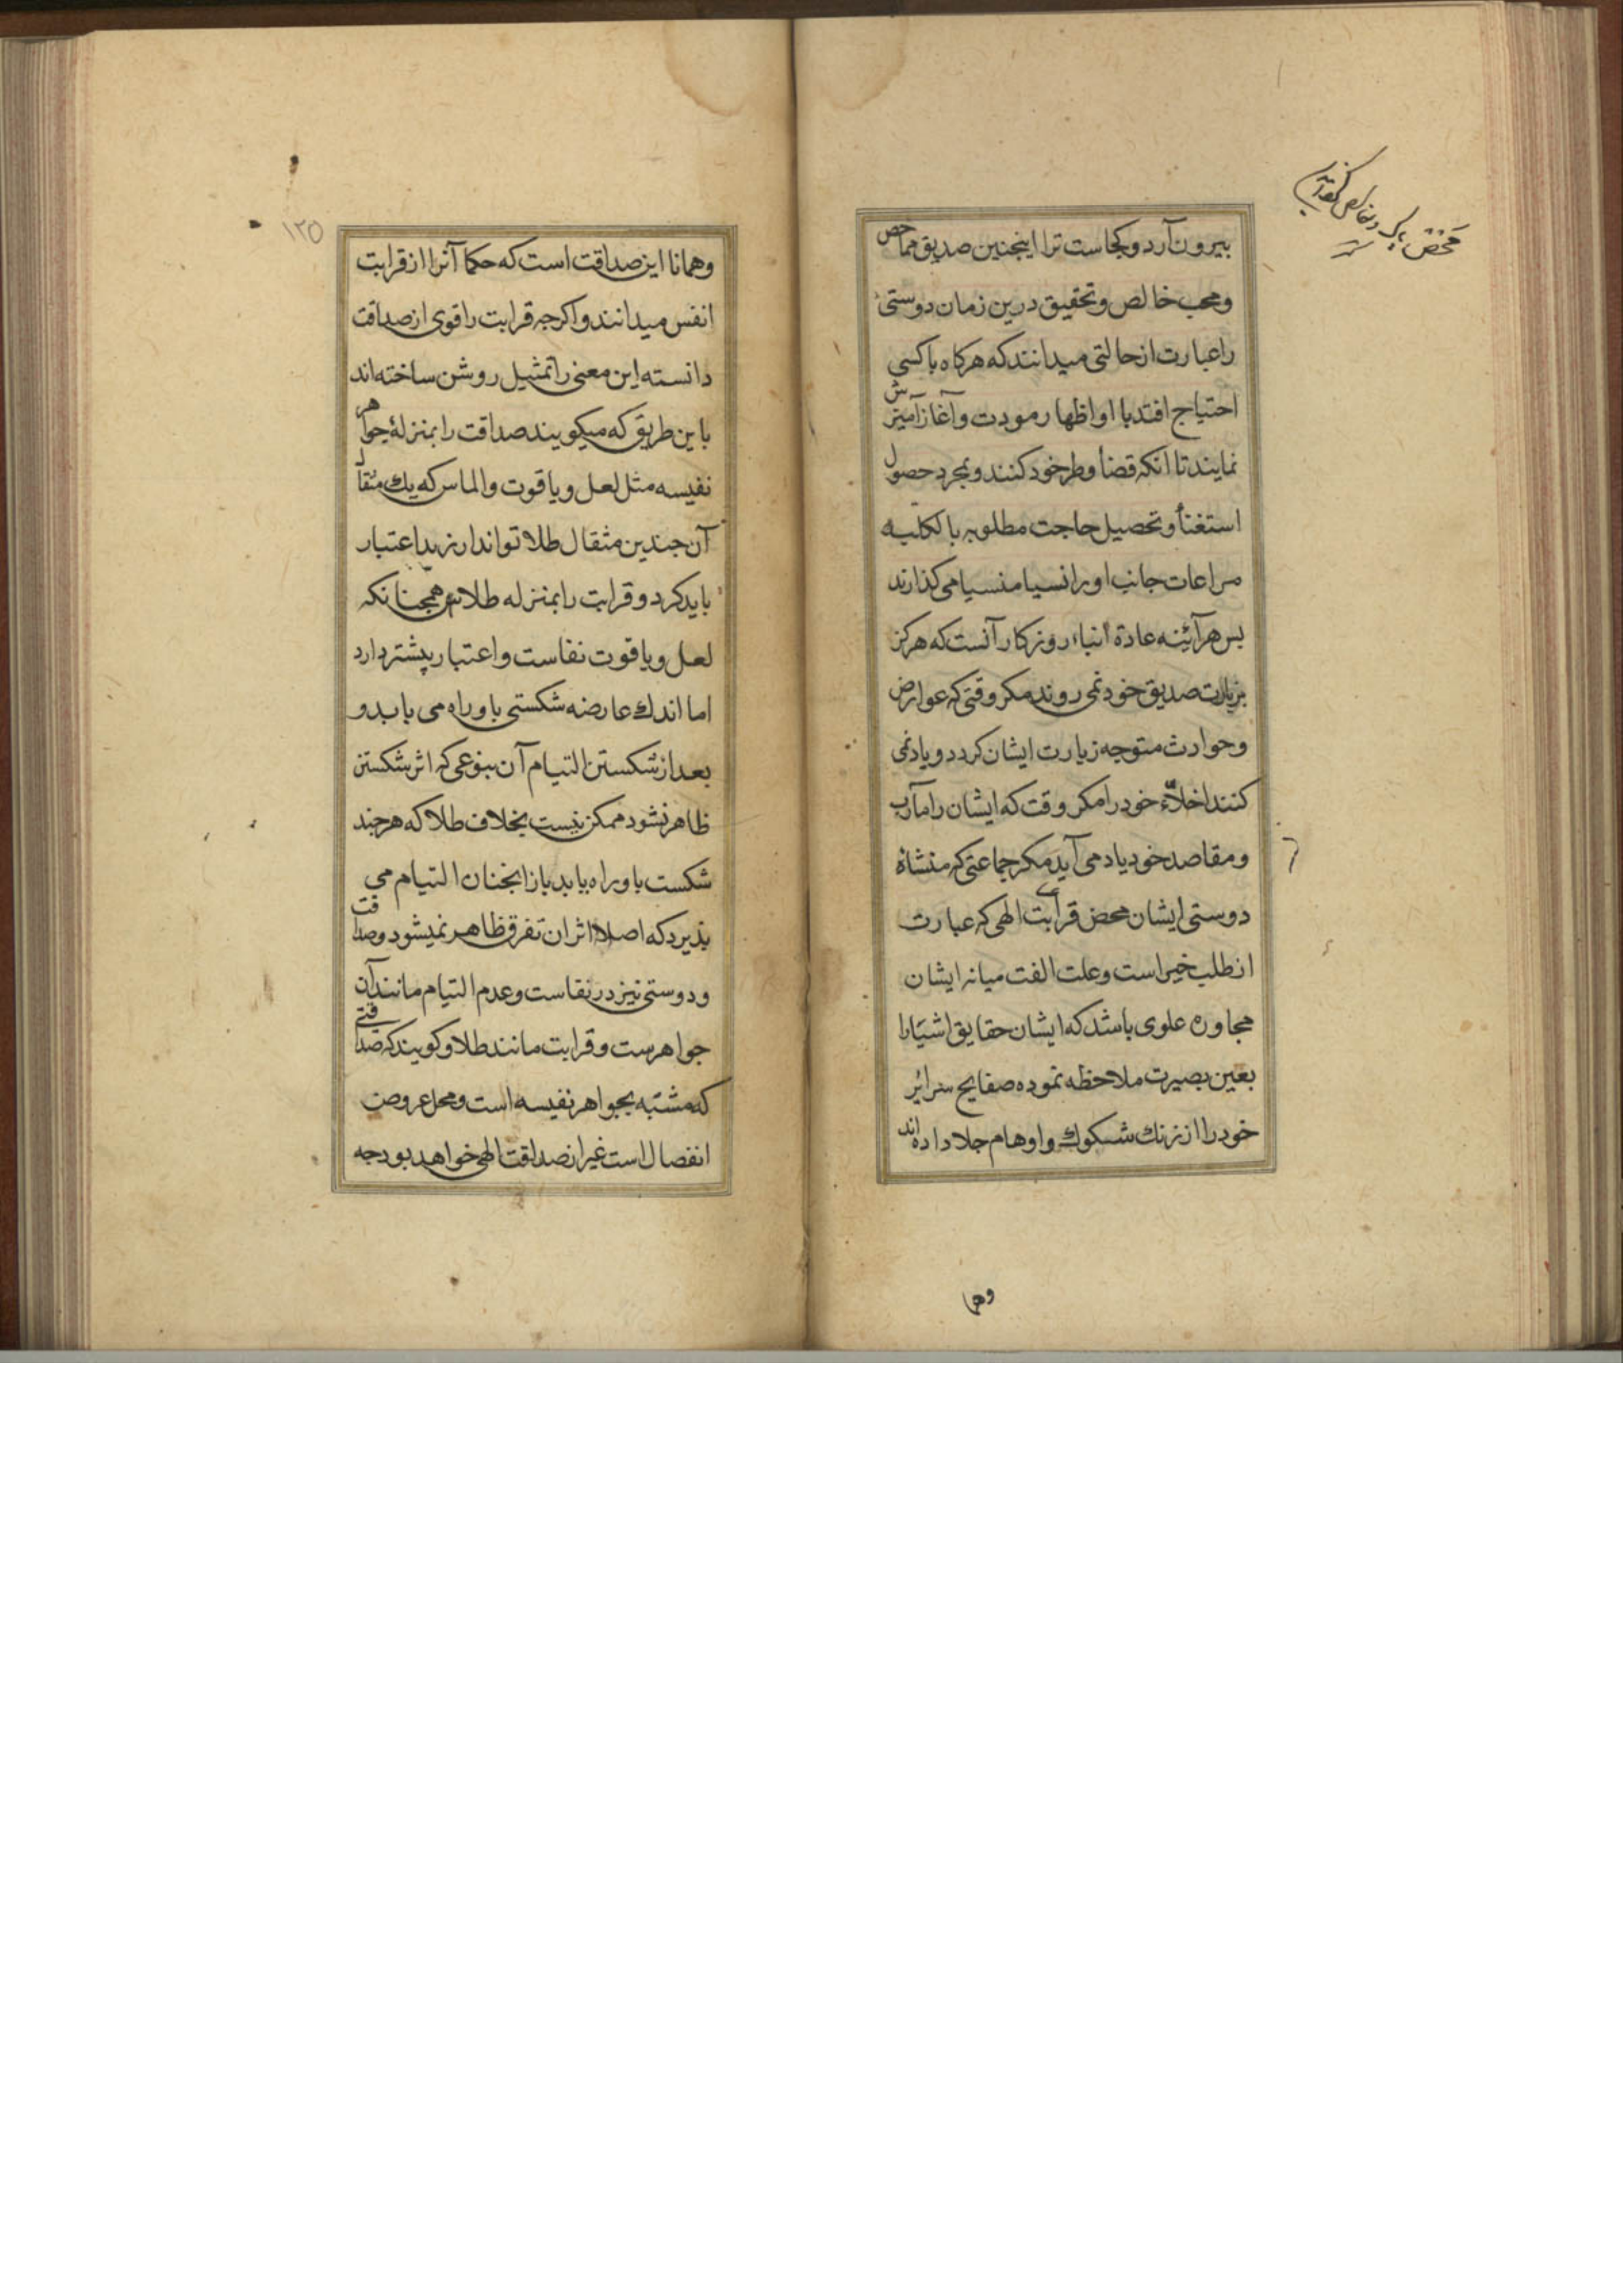 بیرون آرد و کجاست ترا اینجنین صدیق مماحض
و محب خالص و تحقیق درین زمان دوستیٔ
را عبارت از حالتی میدانند که هرکاه با کسی
احتیاج افتد با او اظهار مودت و آغاز آمیزش
نمایند تا آنکه قضاء وطر خود کنند و بمجرد حصول
استغناء و تحصیل حاجت مطلوبه بالکلیه
مراعات جانب او را نسیا منسیا می کذارند
بس هر آئینه عادة ابناء روزکار آنست که هرکز
بزیارت صدیق خود نمی روند مکر وقتی که عوارض
و حوادث متوجه زیارت ایشان کردد و یاد نمی
کنند اخلاّء خود را مکر وقت که ایشان را مآرب
و مقاصد خود یاد می آید مکر جماعتی که منشاء
دوستی ایشان محض قرابت الهی که عبارت
از طلب خیر است و علت الفت میانه ایشان
مجاوره علوی باشد که ایشان حقایق اشیَا را
بعین بصیرت ملاحظه نموده صفایح سرائر
خود را از زنك شکوك و اوهام جلا داده اند
وهما
١٢٥
وهمانا این صداقت است که حکما آنرا از قرابت
انفس میدانند و اکرجه قرابت را قوی از صداقت
دانسته این معنی را تمثیل روشن ساخته اند
باین طریق که میکویند صداقت را بمنزلهٔ جواهر
نفیسه مثل لعل و یاقوت و الماس که یك مثقال
آن جندین مثقال طلا تواند ارزید اعتبار
باید کرد و قرابت را بمنزله طلا همجنانکه
لعل و یاقوت نفاست و اعتبار بیشتر دارد
اما اندك عارضه شکستی باو راه می یابد و
بعد از شکستن التیام آن بنوعی که اثر شکستن
ظاهر نشود ممکن نیست بخلاف طلا که هرجند
شکست باو راه یابد باز انجنان التیام می
بذیرد که اصلا اثر ان تفرق ظاهر نمیشود و صداقت
و دوستی نیز در نفاست و عدم التیام مانند آن
جواهرست و قرابت مانند طلا و کویند که صداقتی
که مشتبه بجواهر نفیسه است و محل عروض
انفصال است غیر از صداقت الهی خواهد بود جه